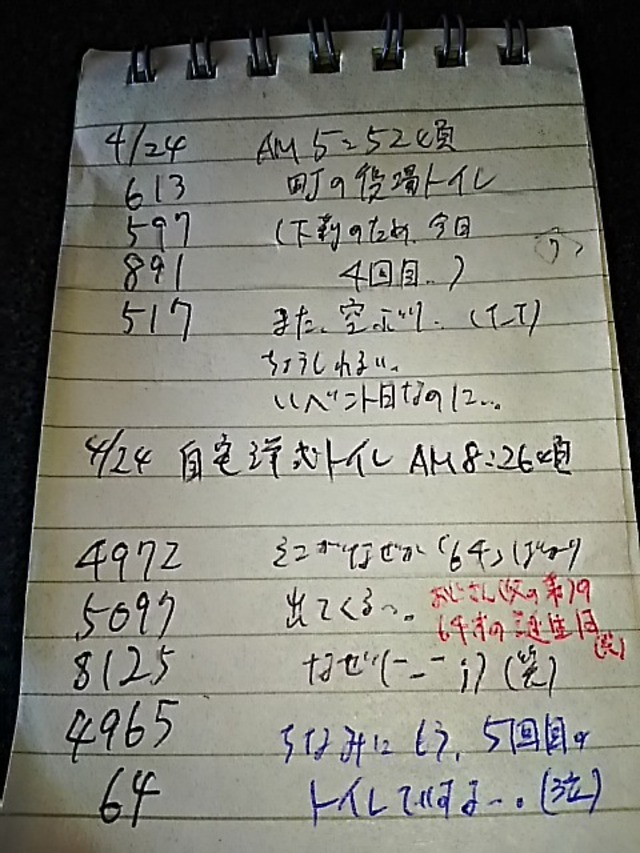 4/24 AM 5:52頃
613 町の役場トイレ
597 (下剤のため、今日
891 4回目..)
517 また、空ぶり.. (T_T)
ちょうしわるい、
イベント目なのに...
4/24 自宅洋式トイレ AM8:26頃
4972 そこがなぜか「64」ばかり
5097 出てくる〜。
おじさん(父の弟)の
64才の誕生日
(笑)
8125 なぜ(-_-;)(笑)
4965 ちなみにもう、5回目の
64 トイレですよ〜。(泣)